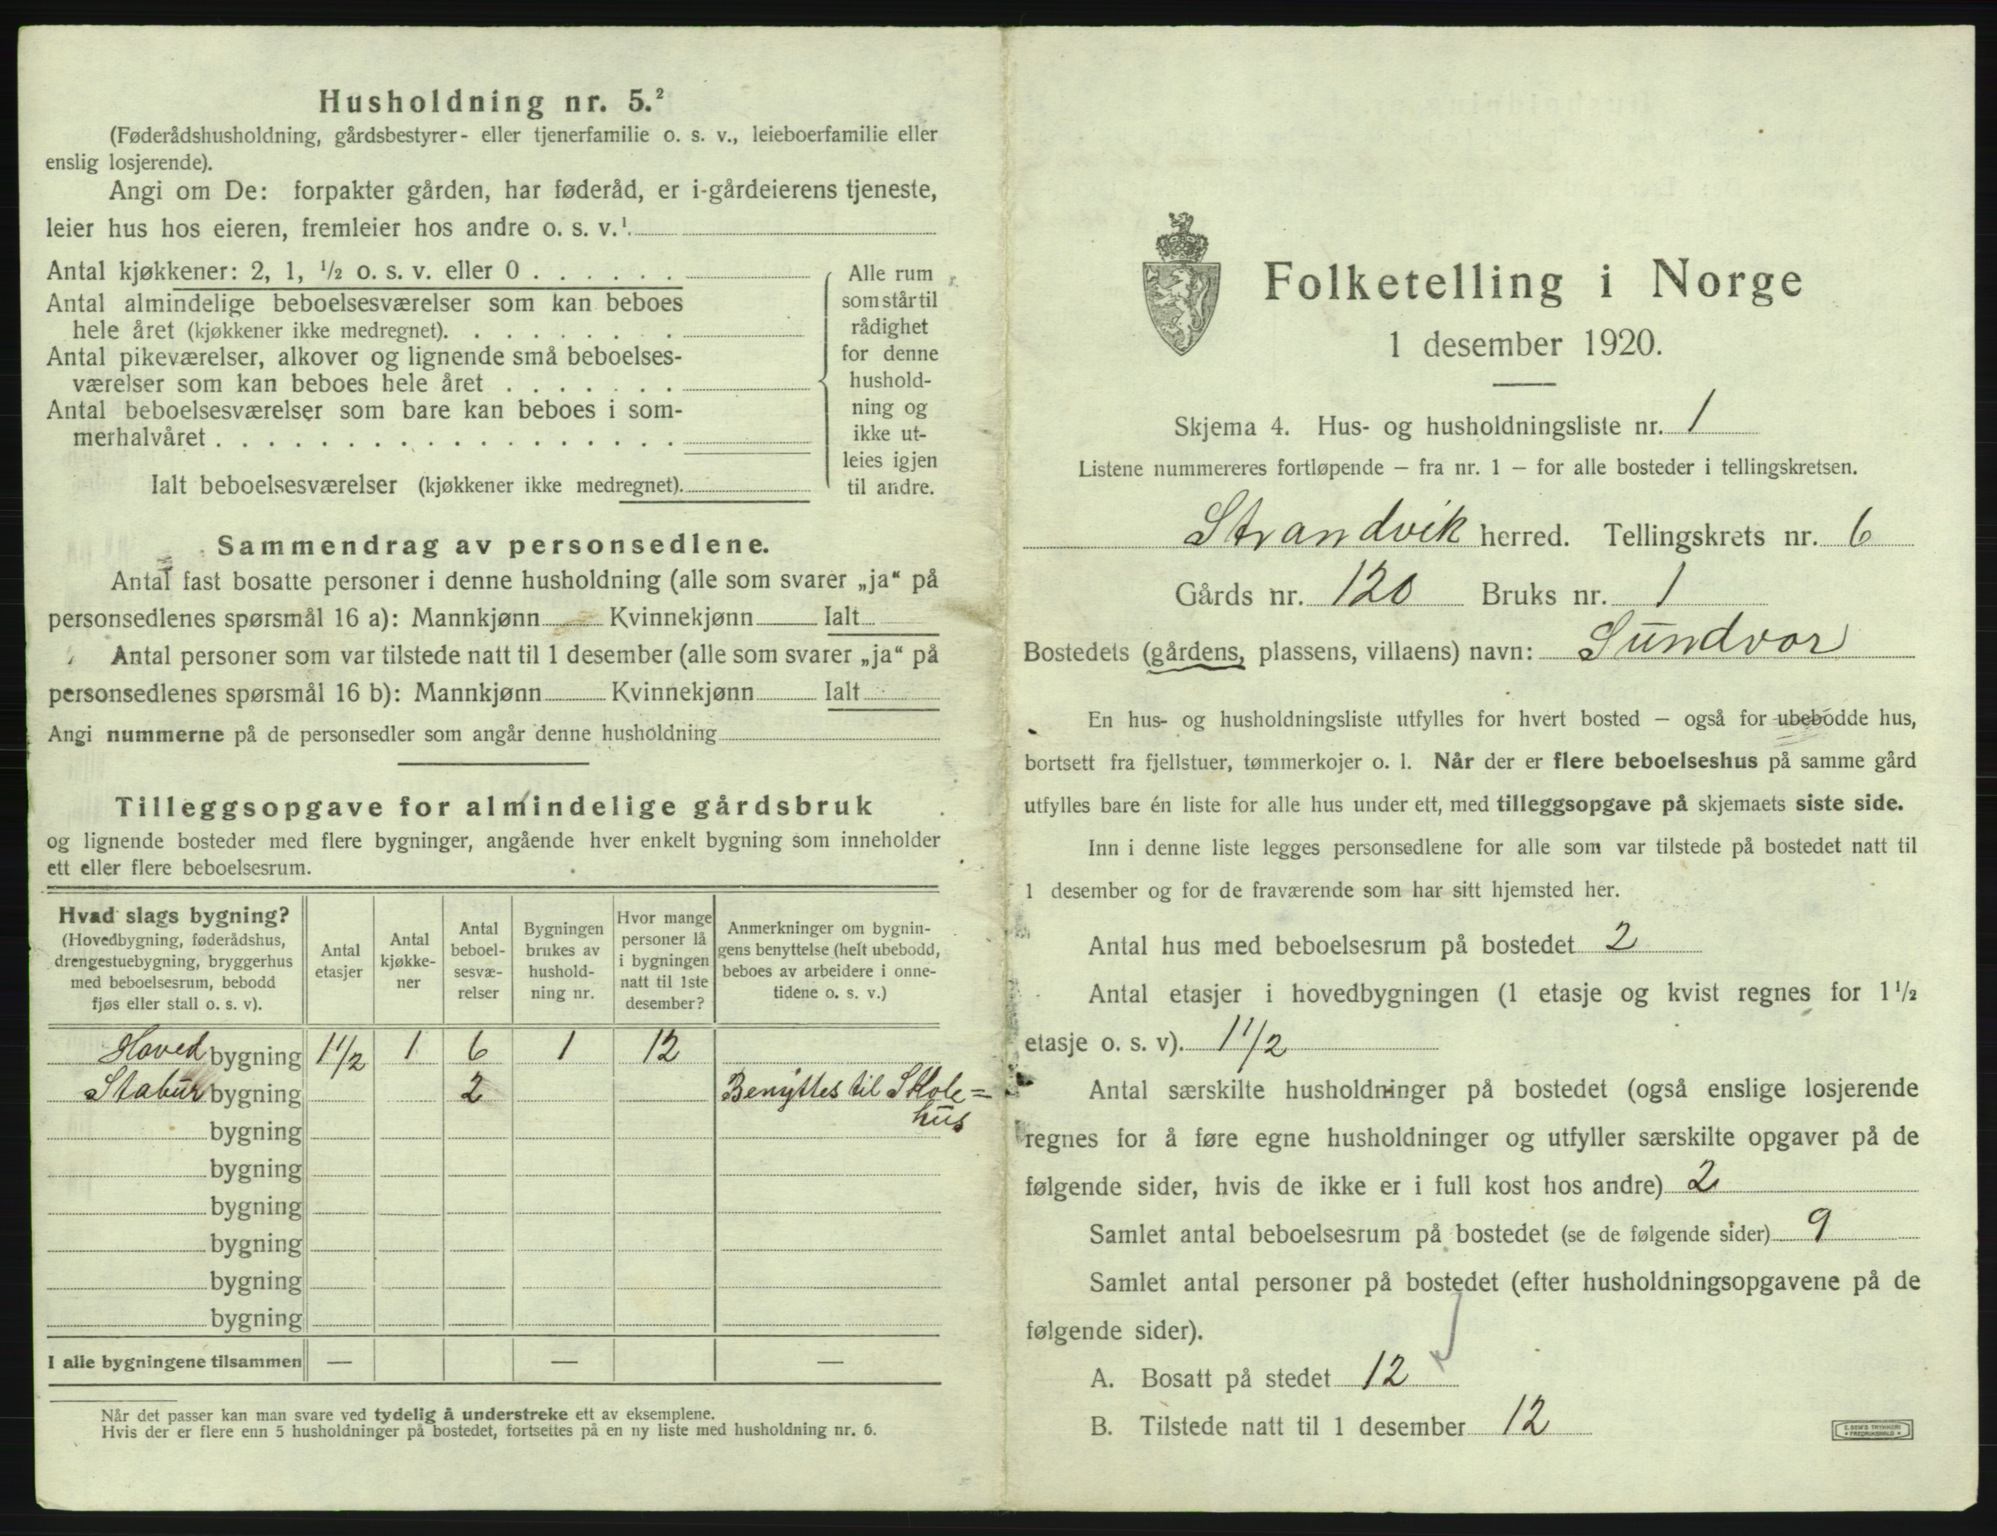 Husholdning nr. 5.²
(Føderådshusholdning, gårdsbestyrer- eller tjenerfamilie o. s. v., leieboerfamilie eller
enslig losjerende).
Angi om De: forpakter gården, har føderåd, er i gårdeierens tjeneste,
leier hus hos eieren, fremleier hos andre o. s. v.¹
Antal kjøkkener: 2, 1, ½ o. s. v. eller 0 . . . . . .
Antal almindelige beboelsesværelser som kan beboes
hele året (kjøkkener ikke medregnet). . . . . . . . .
Antal pikeværelser, alkover og lignende små beboelses-
værelser som kan beboes hele året . . . . . . .
Antal beboelsesværelser som bare kan beboes i som-
merhalvåret . . . . . . . . . . . . . . . . . .
Ialt beboelsesværelser (kjøkkener ikke medregnet).
Alle rum
som står til
rådighet
for denne
hushold-
ning og
ikke ut-
leies igjen
til andre.
Sammendrag av personsedlene.
Antal fast bosatte personer i denne husholdning (alle som svarer „ja“ på
personsedlenes spørsmål 16 a): Mannkjønn Kvinnekjønn Ialt
Antal personer som var tilstede natt til 1 desember (alle som svarer „ja“ på
personsedlenes spørsmål 16 b): Mannkjønn Kvinnekjønn Ialt
Angi nummerne på de personsedler som angår denne husholdning
Tilleggsopgave for almindelige gårdsbruk
og lignende bosteder med flere bygninger, angående hver enkelt bygning som inneholder
ett eller flere beboelsesrum.
Hvad slags bygning?
(Hovedbygning, føderådshus,
drengestuebygning, bryggerhus
med beboelsesrum, bebodd
fjøs eller stall o. s. v).
Antal
etasjer
Antal
kjøkke-
ner
Antal
beboel-
sesvæ-
relser
Bygningen
brukes av
hushold-
ning nr.
Hvor mange
personer lå
i bygningen
natt til 1ste
desember?
Anmerkninger om bygnin-
gens benyttelse (helt ubebodd,
beboes av arbeidere i onne-
tidene o. s. v.)
Hoved bygning 1 1/2 1 6 1 12
Stabur bygning 2 Benyttes til Skole=
hus
bygning
bygning
bygning
bygning
bygning
bygning
I alle bygningene tilsammen — — —
Når det passer kan man svare ved tydelig å understreke ett av eksemplene.
Hvis der er flere enn 5 husholdninger på bostedet, fortsettes på en ny liste med husholdning nr. 6.
Folketelling i Norge
1 desember 1920.
Skjema 4. Hus- og husholdningsliste nr. 1
Listene nummereres fortløpende – fra nr. 1 – for alle bosteder i tellingskretsen.
Strandvik herred. Tellingskrets nr. 6
Gårds nr. 120 Bruks nr. 1
Bostedets (gårdens, plassens, villaens) navn: Sundvor
En hus- og husholdningsliste utfylles for hvert bosted – også for ubebodde hus,
bortsett fra fjellstuer, tømmerkojer o. l. Når der er flere beboelseshus på samme gård
utfylles bare én liste for alle hus under ett, med tilleggsopgave på skjemaets siste side.
Inn i denne liste legges personsedlene for alle som var tilstede på bostedet natt til
1 desember og for de fraværende som har sitt hjemsted her.
Antal hus med beboelsesrum på bostedet 2
Antal etasjer i hovedbygningen (1 etasje og kvist regnes for 1½
etasje o. s. v). 1 1/2
Antal særskilte husholdninger på bostedet (også enslige losjerende
regnes for å føre egne husholdninger og utfyller særskilte opgaver på de
følgende sider, hvis de ikke er i full kost hos andre) 2
Samlet antal beboelsesrum på bostedet (se de følgende sider) 9
Samlet antal personer på bostedet (efter husholdningsopgavene på de
følgende sider).
A. Bosatt på stedet 12
B. Tilstede natt til 1 desember 12